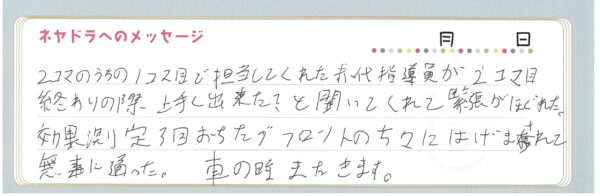 ネヤドラへのメッセージ
月 日
2コマのうちの1コマ目で担当してくれた 代指導員が2コマ目
終わりの際、上手く出来た?と聞いてくれて緊張がほぐれた。
効果測定3回おちたがフロントの方々にはげまされて
無事に通った。 車の時またきます。